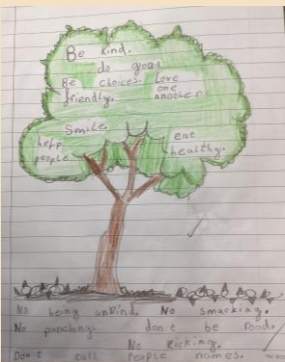 Be kind.
do good
Be choices. Love
friendly. one
another
Smile.
help eat
people healthy.
No being unkind. No smacking.
No punching. don't be
No kicking.
Don't call People names.